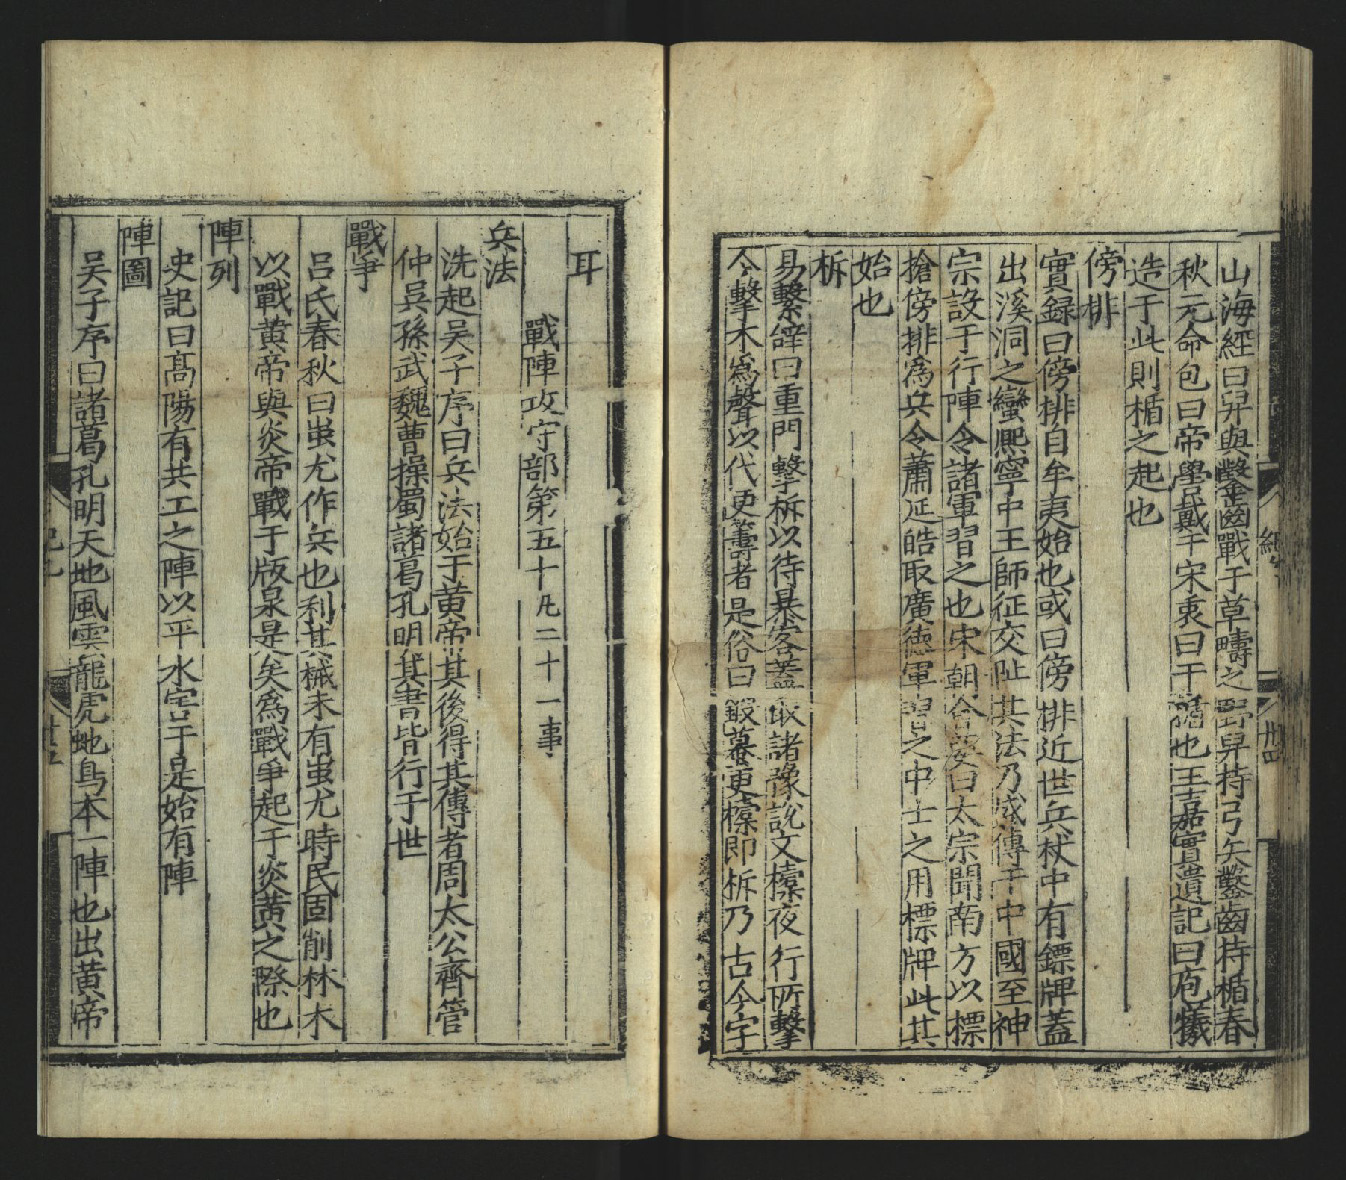 山海經曰羿與鑿齒戰于草疇之野羿持弓矢鑿齒持楯春
秋元命包曰帝嚳戴干宋衷曰干楯也王嘉實遺記曰庖犧
造于此則楯之起也
傍排
實録曰傍排自牟夷始也或曰傍排近世兵杖中有鏢牌蓋
出溪洞之蠻熈寧中王師征交阯其法乃盛傳于中國至神
宗設于行陣令諸軍習之也宋朝會要曰太宗聞南方以標
搶傍排爲兵令蕭延皓取廣德軍習之中士之用標牌此其
始也
柝
易繫辝曰重門擊柝以待暴客蓋取諸豫說文㯓夜行所擊
今擊木爲聲以代更籌者是俗曰鍜蟇更㯓即柝乃古今字
耳
戰陣攻守部第五十凡二十一事
兵法
洗起吴子序曰兵法始于黄帝其後得其傳者周太公齊管
仲吴孫武魏曹操蜀諸葛孔明其書皆行于世
戰爭
吕氏春秋曰蚩尤作兵也利其械未有蚩尤時民固削林木
以戰黄帝與炎帝戰于版泉是矣爲戰爭起于炎黄之際也
陣列
史記曰髙陽有共工之陣以平水害于是始有陣
陣圖
吴子序曰諸葛孔明天地風雲龍虎虵鳥本一陣也出黄帝
紀
卅四